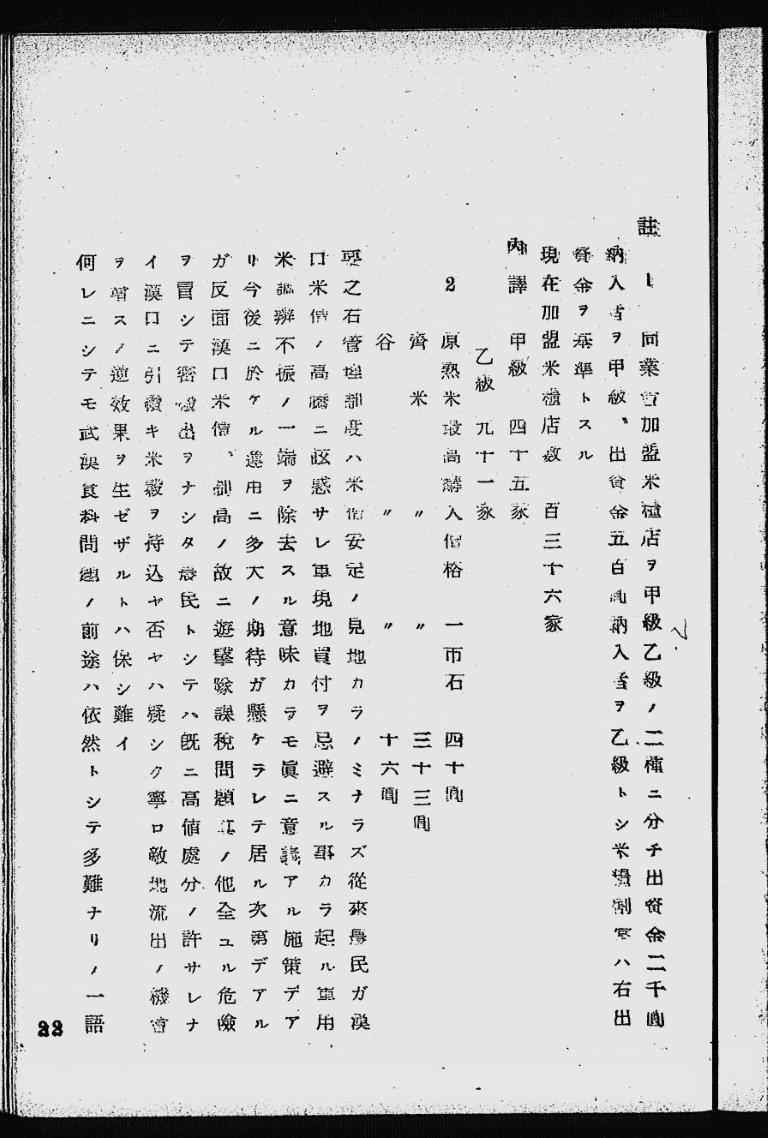 註 1 同業會加盟米糧店ヲ甲級乙級ノ二種ニ分チ出資金二千圓
納入者ヲ甲級、出資金五百圓納入者ヲ乙級トシ米糧割當ハ右出
資金ヲ基準トスル
現在加盟米糧店數 百三十六家
內譯 甲級 四十五家
乙級 九十一家
2 原熟米最高購入價格 一市石 四十圓
齊米 〃 〃 三十三圓
谷 〃 〃 十六圓
要之石管理制度ハ米價安定ノ見地カラノミナラズ從來農民ガ漢
口米價ノ高騰ニ眩惑サレ軍現地買付ヲ忌避スル事カラ起ル軍用
米調辨不振ノ一端ヲ除去スル意味カラモ眞ニ意義アル施策デア
リ今後ニ於ケル運用ニ多大ノ期待ガ懸ケラレテ居ル次第デアル
ガ反面漢口米價、割高ノ故ニ遊擊隊課稅問題其ノ他全ユル危險
ヲ冒シテ密搬出ヲナシタ農民トシテハ旣ニ高値處分ノ許サレナ
イ漢口ニ引續キ米穀ヲ持込ヤ否ヤハ疑シク寧ロ敵地流出ノ機會
ヲ增スノ逆效果ヲ生ゼザルトハ保シ難イ
何レニシテモ武漢食料問題ノ前途ハ依然トシテ多難ナリノ一語
22